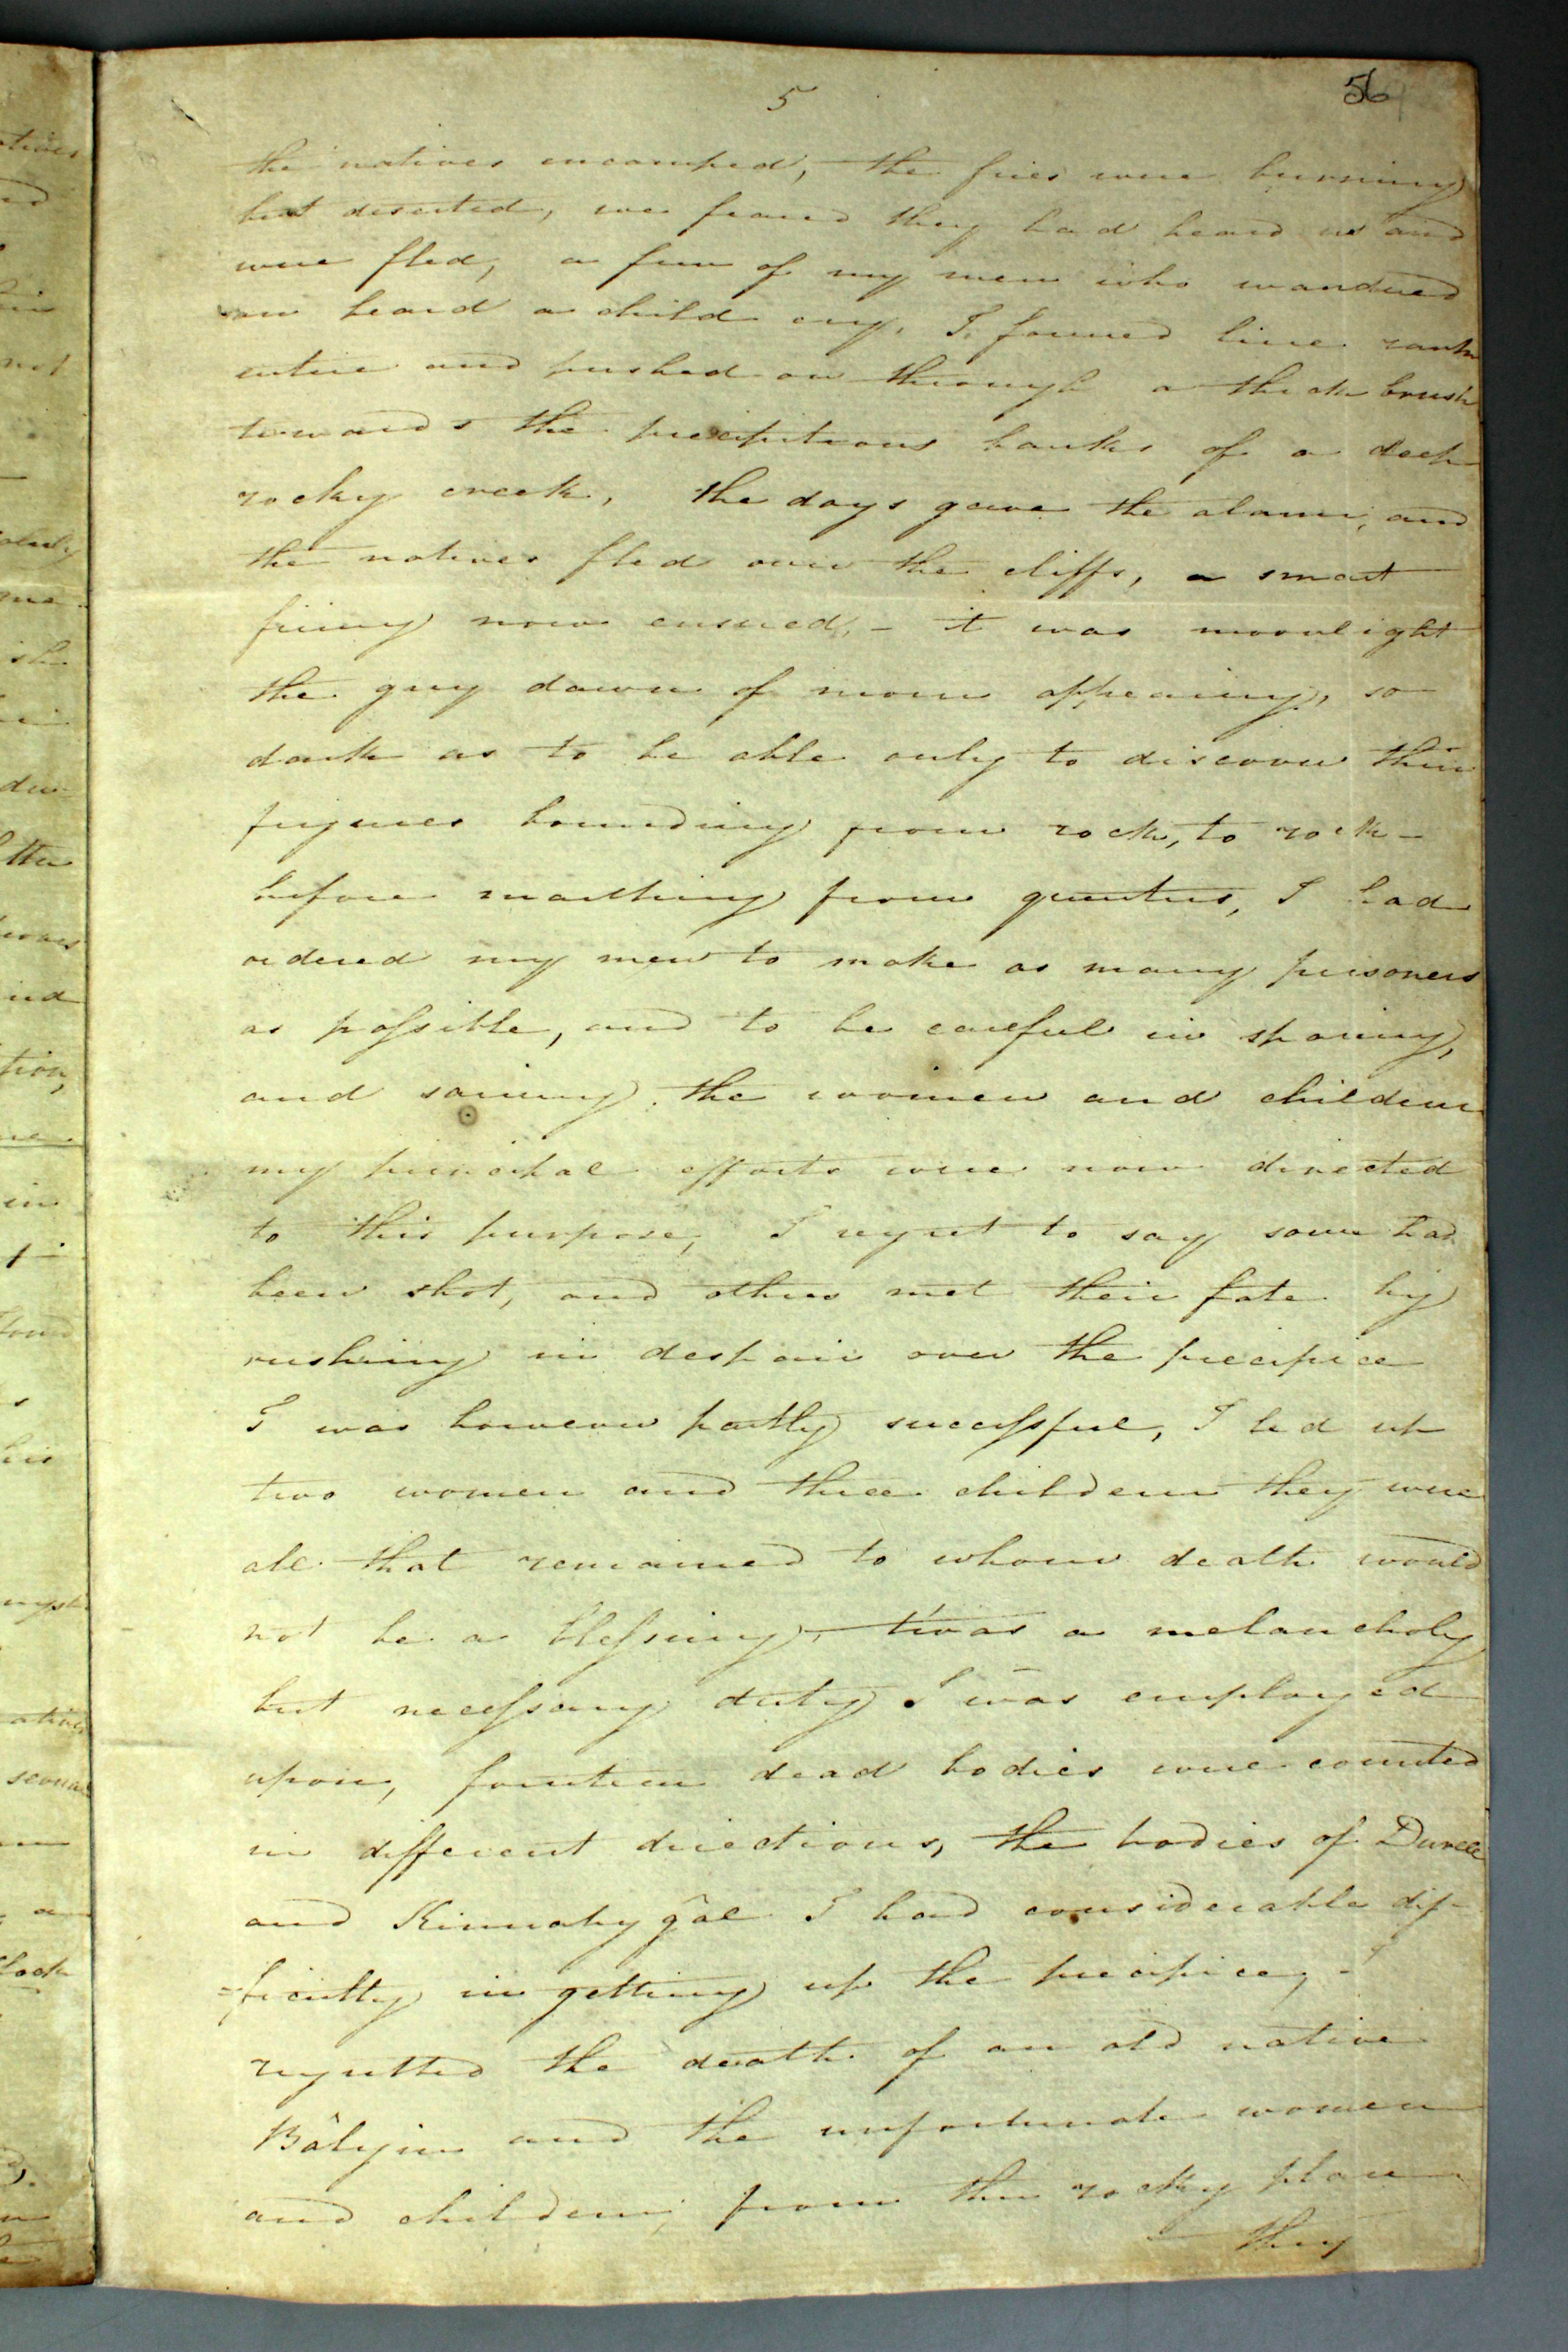 5
56
the natives encamped, the fires were burning
but deserted, we feared they had heard us and
were fled, a few of my men who wandered
on heard a child cry, I formed line rank
entire and pushed on through a thick brush
towards the precipitous banks of a deep
rocky creek, the dogs gave the alarm, and
the natives fled over the cliffs, a smart
firing now ensued, – it was moonlight
the grey dawn of morn appearing, so
dark as to be able only to discover their
figures bounding from rock, to rock –
before marching from quarters, I had
ordered my men to make as many prisoners
as possible, and to be careful in sparing,
and saving the women and children
my principal efforts were now directed
to this purpose, I regret to say some had
been shot, and others met their fate by
rushing in despair over the precipice
I was however partly successful, I led up
two women and three children they were
all that remained to whom death would
not be a blessing, – 'twas a melancholy
but necessary duty I was employed
upon, fourteen dead bodies were counted
in different directions, the bodies of Durelle
and Kinnabygâl I had considerable dif-
-ficulty in getting up the precipice, – I
regretted the death of an old native
Bâlyin and the unfortunate women
and children, from the rocky place
they